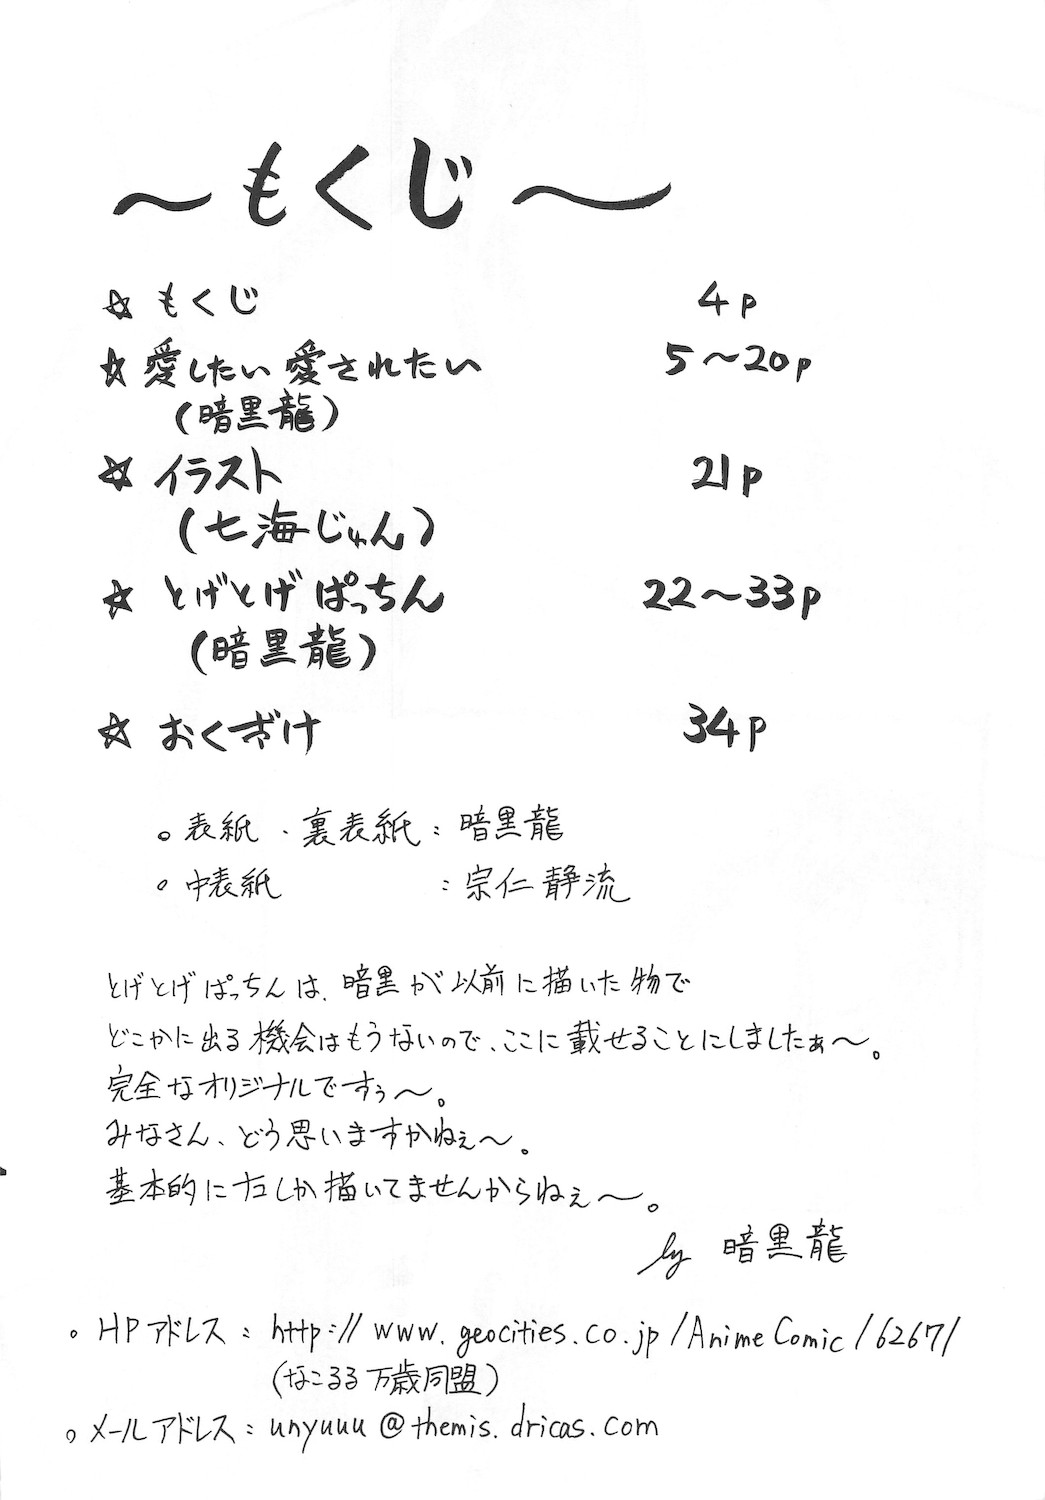 〜もくじ〜
☆ もくじ 4p
☆ 愛したい 愛されたい 5〜20p
(暗黒龍)
☆ イラスト 21p
(七海じゅん)
☆ とげとげぱっちん 22〜33p
(暗黒龍)
☆ おくざけ 34p
。表紙、裏表紙：暗黒龍
。中表紙 ：宗仁静流
とげとげぱっちんは、暗黒が以前に描いた物で
どこかに出る機会はもうないので、ここに載せることにしましたぁ〜。
完全なオリジナルですぅ〜。
みなさん、どう思いますかねぇ〜。
基本的に しか描いてませんからねぇ〜。
by 暗黒龍
。HPアドレス：http://www.geocities.co.jp/AnimeComic/6267/
(なこるる万歳同盟)
。メールアドレス：unyuuu@themis.dricas.com